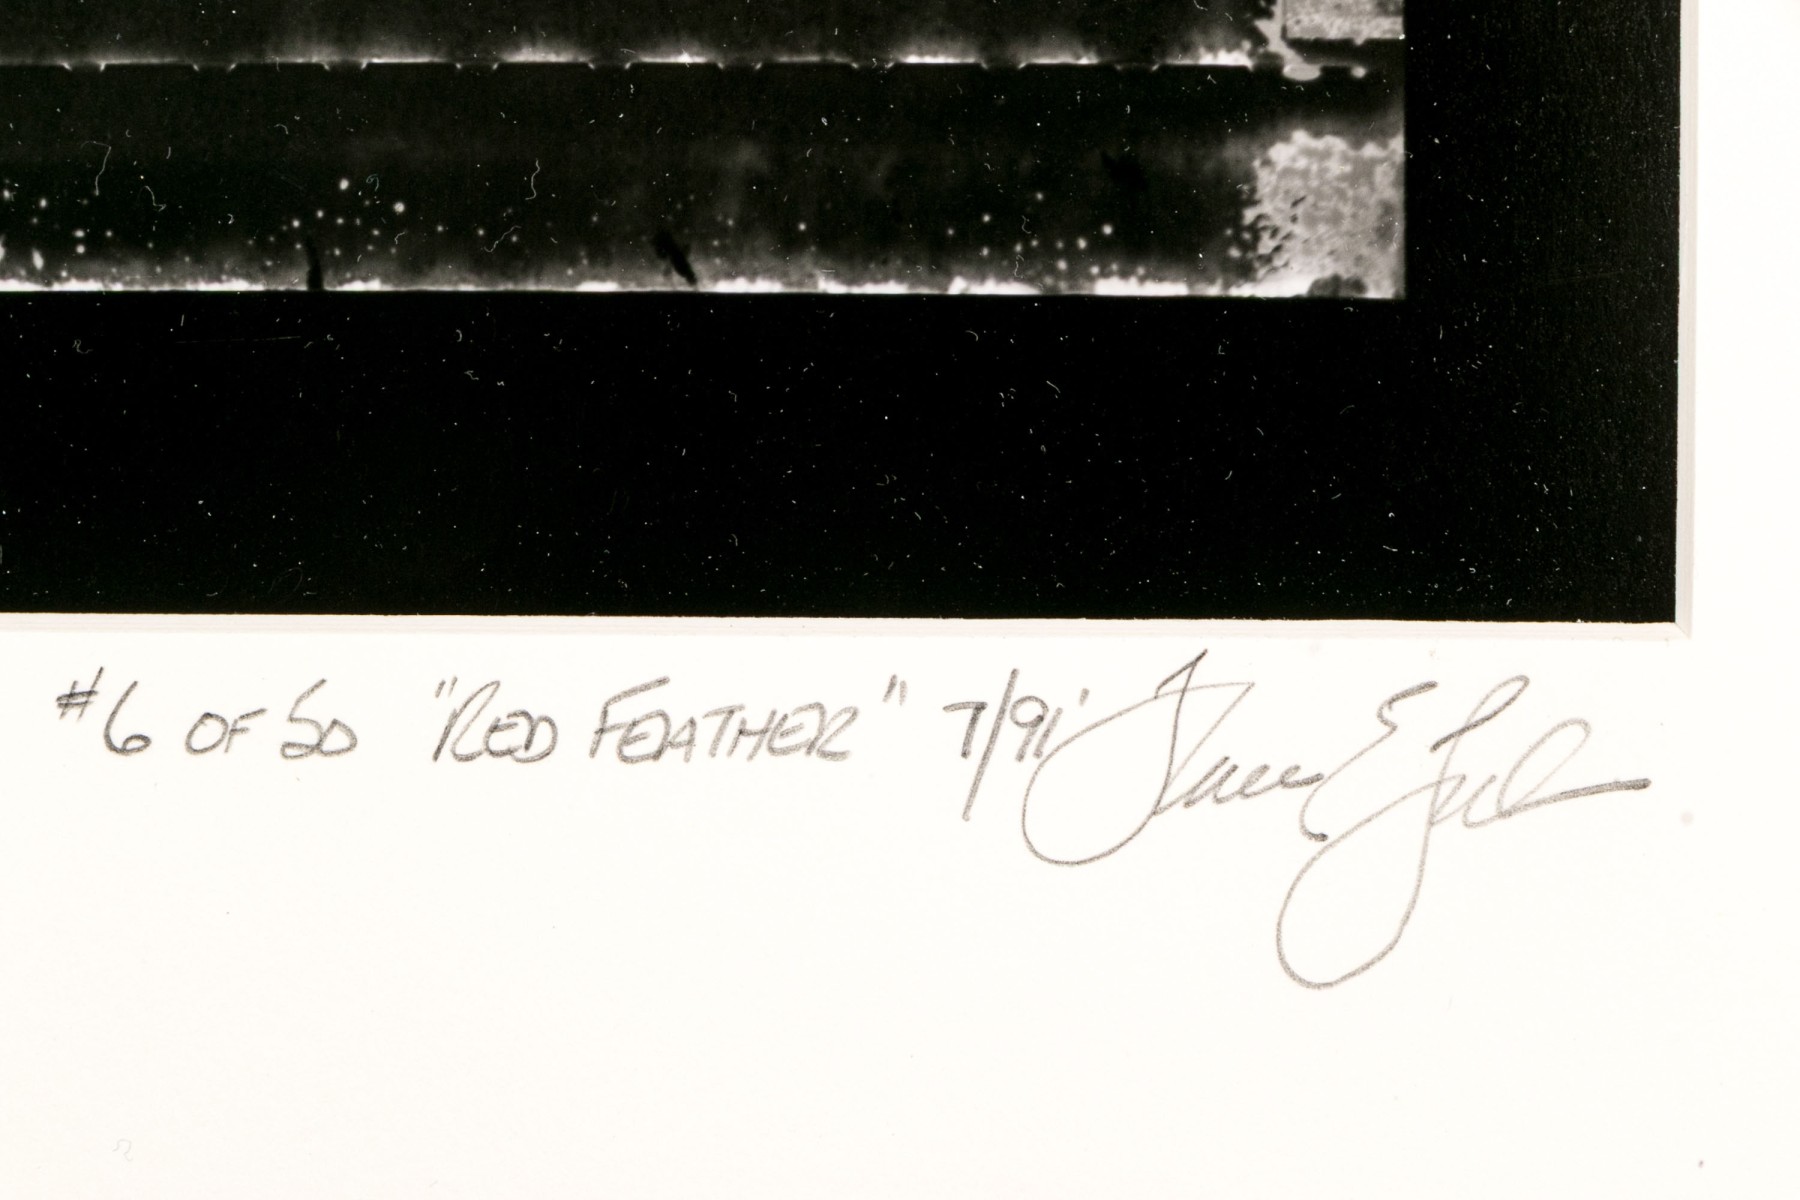 #6 OF 50 "RED FEATHER" 7/91'